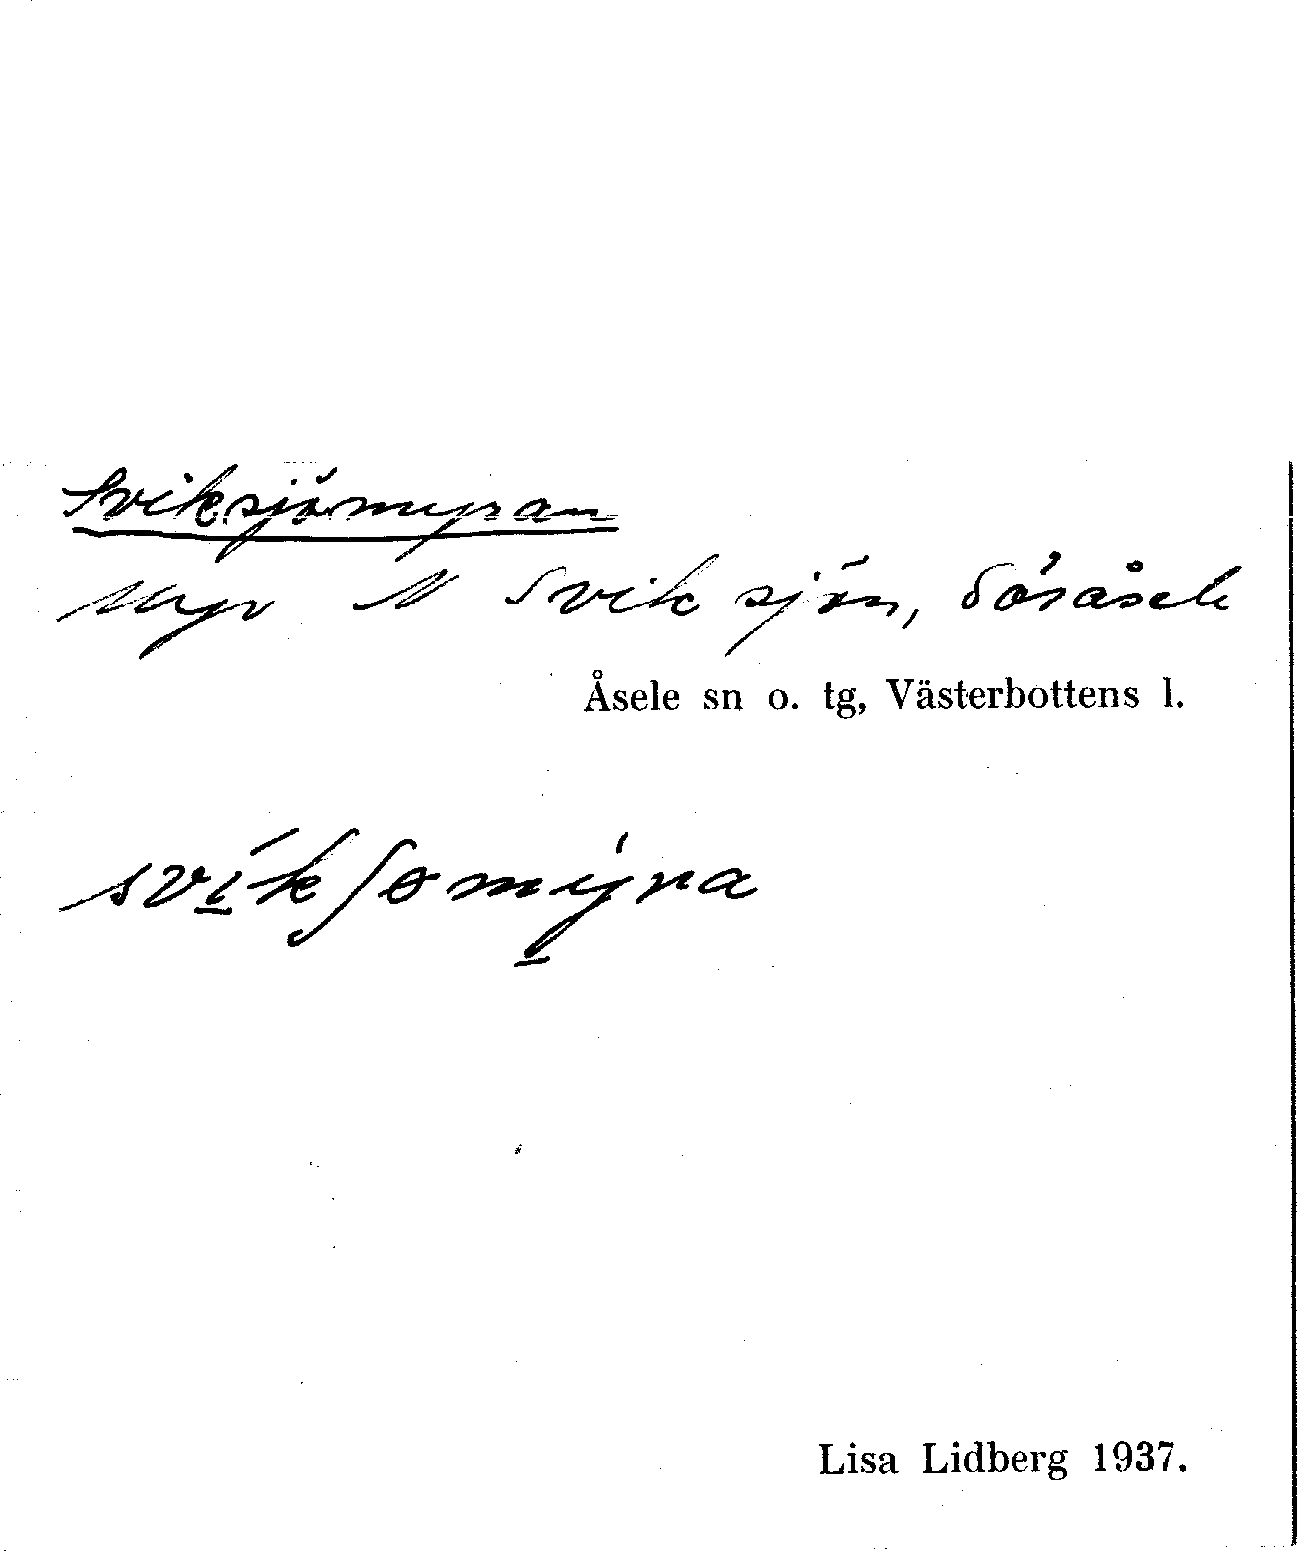 Sviksjömyran
Myr N Sviksjön, Söråsele
Åsele sn o. tg, Västerbottens l.
svíkʃɵmýra
Lisa Lidberg 1937.